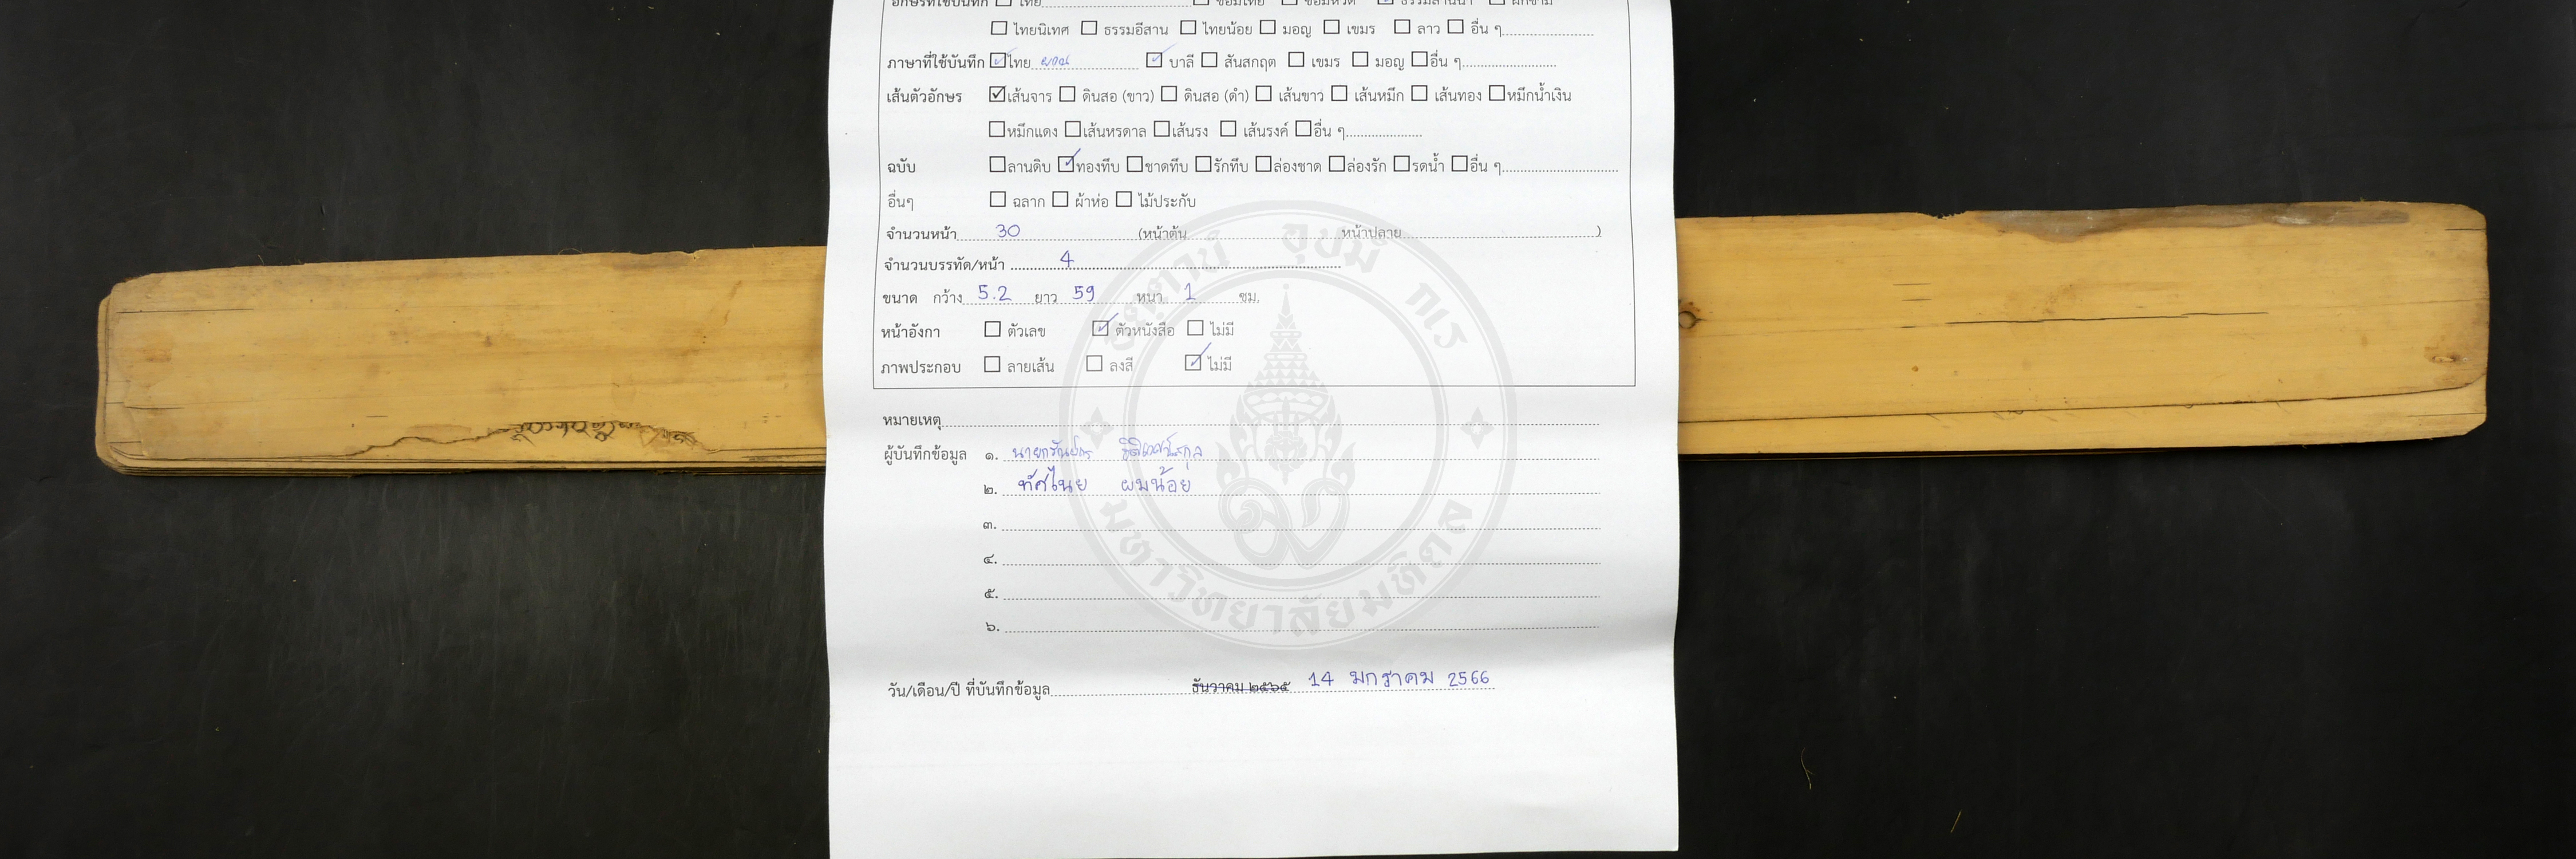 อักษรที่ใช้บันทึก ☐ ไทย ☐ ขอมไทย ☐ ขอมหวัด ☑ ธรรมล้านนา ☐ ฝักขาม
☐ ไทยนิเทศ ☐ ธรรมอีสาน ☐ ไทยน้อย ☐ มอญ ☐ เขมร ☐ ลาว ☐ อื่น ๆ
ภาษาที่ใช้บันทึก ☑ ไทย ยวน ☑ บาลี ☐ สันสกฤต ☐ เขมร ☐ มอญ ☐ อื่น ๆ
เส้นตัวอักษร ☑ เส้นจาร ☐ ดินสอ (ขาว) ☐ ดินสอ (ดำ) ☐ เส้นขาว ☐ เส้นหมึก ☐ เส้นทอง ☐ หมึกน้ำเงิน
☐ หมึกแดง ☐ เส้นหรดาล ☐ เส้นรง ☐ เส้นรงค์ ☐ อื่น ๆ
ฉบับ ☐ ลานดิบ ☑ ทองทึบ ☐ ชาดทึบ ☐ รักทึบ ☐ ล่องชาด ☐ ล่องรัก ☐ รดน้ำ ☐ อื่น ๆ
อื่นๆ ☐ ฉลาก ☐ ผ้าห่อ ☐ ไม้ประกับ
จำนวนหน้า 30 (หน้าต้น หน้าปลาย )
จำนวนบรรทัด/หน้า 4
ขนาด กว้าง 5.2 ยาว 59 หนา 1 ซม.
หน้าอังกา ☐ ตัวเลข ☑ ตัวหนังสือ ☐ ไม่มี
ภาพประกอบ ☐ ลายเส้น ☐ ลงสี ☑ ไม่มี
หมายเหตุ
ผู้บันทึกข้อมูล ๑.
๒. ทัศไนย ผมน้อย
๓.
๔.
๕.
๖.
วัน/เดือน/ปี ที่บันทึกข้อมูล ธันวาคม ๒๕๖๕ 14 มกราคม 2566
อตฺตานํ อุปมํ กเร
มหาวิทยาลัยมหิดล